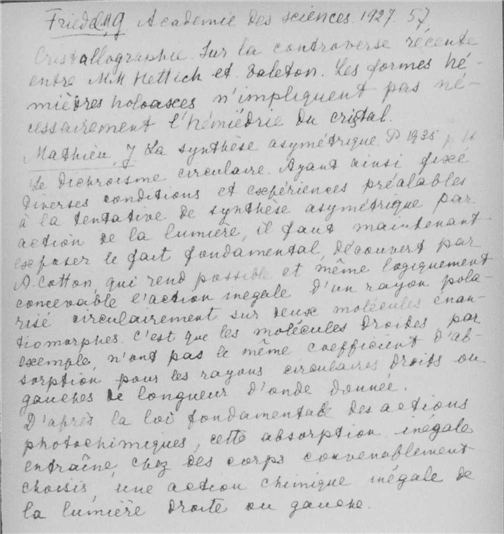 Friedel, G Academie des sciences. 1927. 57
Cristallographie. Sur la controverse récente
entre M.M Hettich et Valeton. Les formes hé-
mièdres holoaxes n'impliquent pas né-
cessairement l'hémiédrie du cristal.
Mathieu J La synthèse asymétrique. P 1935
Le Dichroisme circulaire. Ayant ainsi fixé
diverses conditions et expériences préalables
à la tentative de synthèse asymétrique par
action de la lumière, il faut maintenant
exposer le fait fondamental, découvert par
A. Cotton, qui rend possible et même logiquement
concevable l'action inégale d'un rayon pola-
risé circulairement sur deux molécules énan-
tiomorphes. C'est que les molécules droites par
exemple, n'ont pas le même coefficient d'ab-
sorption pour les rayons circulaires droits ou
gauches de longueur d'onde donnée.
D'après la loi fondamentale des actions
photochimiques, cette absorption inégale
entraîne, chez des corps convenablement
choisis, une action chimique inégale de
la lumière droite ou gauche.